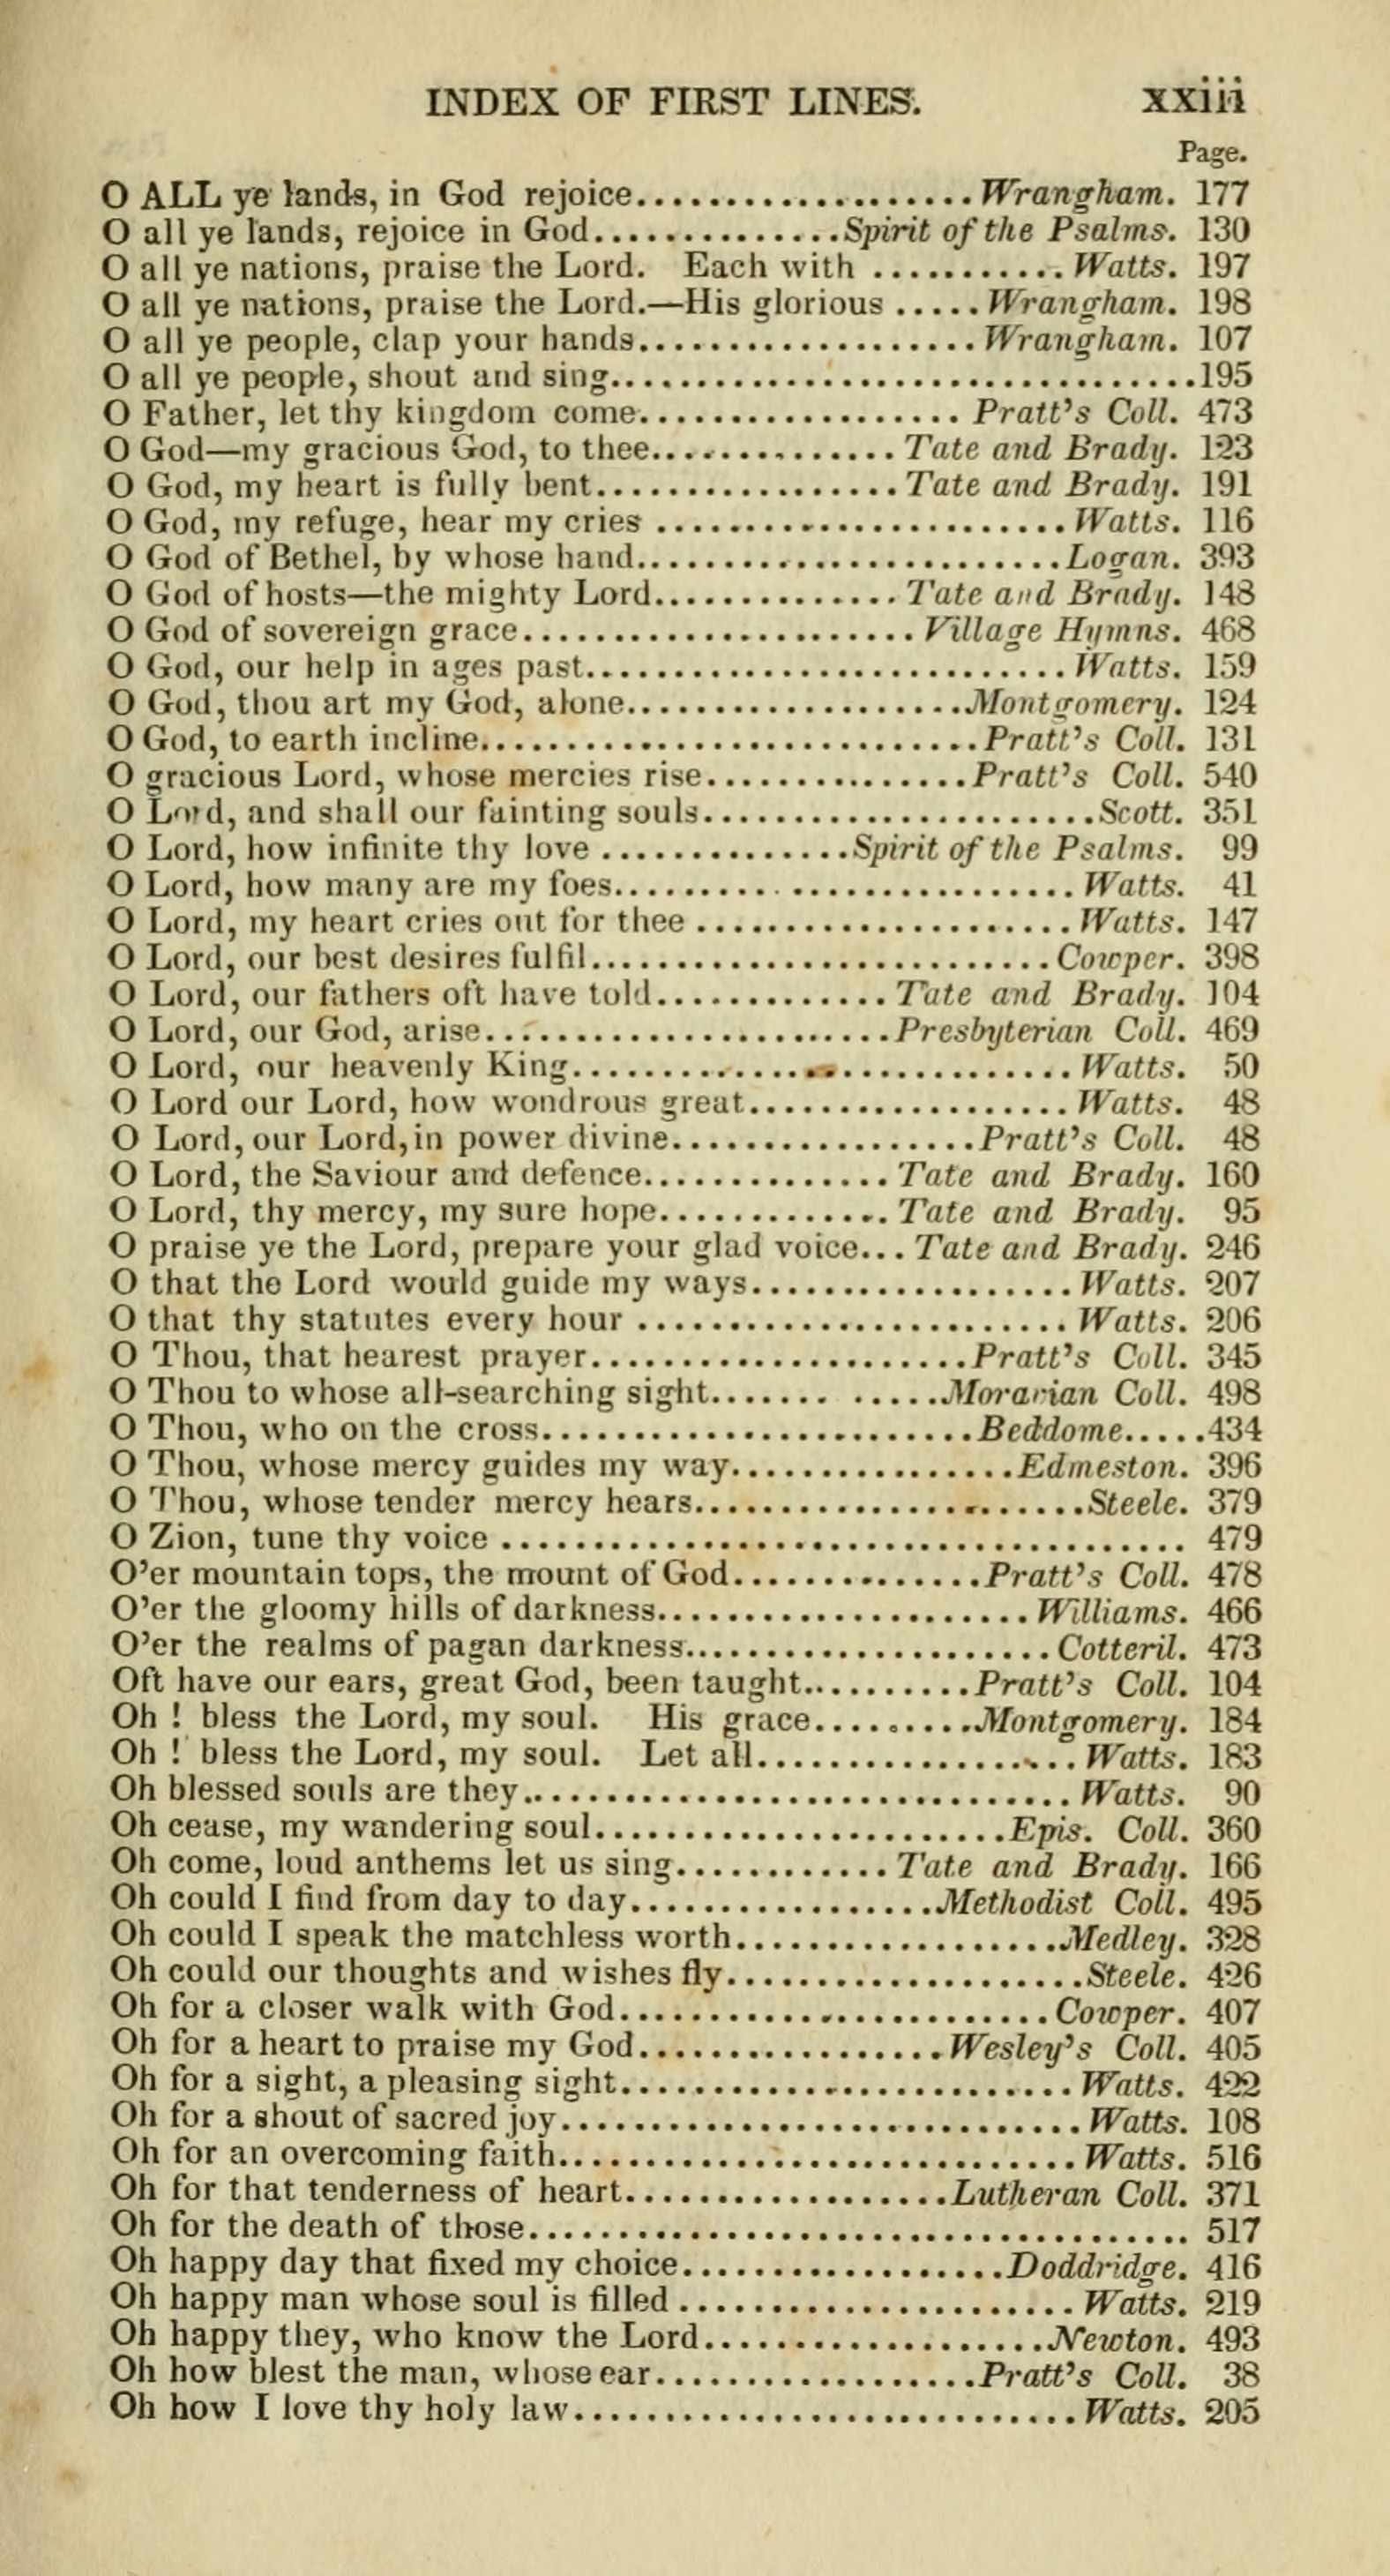 INDEX OF FIRST LINES. xxiii
Page.
O ALL ye lands, in God rejoice................... Wrangham. 177
O all ye lands, rejoice in God..............Spirit of the Psalms. 130
O all ye nations, praise the Lord. Each with ........... Watts. 197
O all ye nations, praise the Lord.—His glorious ..... Wrangham. 198
O all ye people, clap your hands................... Wrangham. 107
O all ye people, shout and sing.................................195
O Father, let thy kingdom come.................. Pratt's Coll. 473
O God—my gracious God, to thee.............. Tate and Brady. 123
O God, my heart is fully bent................. Tate and Brady. 191
O God, my refuge, hear my cries ....................... Watts. 116
O God of Bethel, by whose hand........................Logan. 393
O God of hosts—the mighty Lord.............. Tate and Brady. 148
O God of sovereign grace...................... Village Hymns. 468
O God, our help in ages past........................... Watts. 159
O God, thou art my God, alone...................Montgomery. 124
O God, to earth incline............................Pratt's Coll. 131
O gracious Lord, whose mercies rise...............Pratt's Coll. 540
O Lord, and shall our fainting souls......................Scott. 351
O Lord, how infinite thy love ..............Spirit of the Psalms. 99
O Lord, how many are my foes.......................... Watts. 41
O Lord, my heart cries out for thee ..................... Watts. 147
O Lord, our best desires fulfil..........................Cowper. 398
O Lord, our fathers oft have told............. Tate and Brady. 104
O Lord, our God, arise.......................Presbyterian Coll. 469
O Lord, our heavenly King............................ Watts. 50
O Lord our Lord, how wondrous great.................. Watts. 48
O Lord, our Lord, in power divine.................Pratt's Coll. 48
O Lord, the Saviour and defence.............. Tate and Brady. 160
O Lord, thy mercy, my sure hope............. Tate and Brady. 95
O praise ye the Lord, prepare your glad voice... Tate and Brady. 246
O that the Lord would guide my ways.................. Watts. 207
O that thy statutes every hour ........................ Watts. 206
O Thou, that hearest prayer.....................Pratt's Coll. 345
O Thou to whose all-searching sight....... .....Moravian Coll. 498
O Thou, who on the cross........................Beddome.....434
O Thou, whose mercy guides my way................Edmeston. 396
O Thou, whose tender mercy hears......................Steele. 379
O Zion, tune thy voice ...................................... 479
O'er mountain tops, the mount of God..............Pratt's Coll. 478
O'er the gloomy hills of darkness..................... Williams. 466
O'er the realms of pagan darkness.................... Cotteril. 473
Oft have our ears, great God, been taught..........Pratt's Coll. 104
Oh ! bless the Lord, my soul. His grace.........Montgomery. 184
Oh ! bless the Lord, my soul. Let all.................. Watts. 183
Oh blessed souls are they.............................. Watts. 90
Oh cease, my wandering soul.......................Epis. Coll. 360
Oh come, loud anthems let us sing............ Tate and Brady. 166
Oh could I find from day to day.................Methodist Coll. 495
Oh could I speak the matchless worth..................Medley. 328
Oh could our thoughts and wishes fly....................Steele. 426
Oh for a closer walk with God........................ Cowper. 407
Oh for a heart to praise my God.................Wesley's Coll. 405
Oh for a sight, a pleasing sight......................... Watts. 422
Oh for a shout of sacred joy............................. Watts. 108
Oh for an overcoming faith............................. Watts. 516
Oh for that tenderness of heart..................Lutheran Coll. 371
Oh for the death of those..................................... 517
Oh happy day that fixed my choice..................Doddridge. 416
Oh happy man whose soul is filled ...................... Watts. 219
Oh happy they, who know the Lord...................Newton. 493
Oh how blest the man, whose ear..................Pratt's Coll. 38
Oh how I love thy holy law............................ Watts. 205